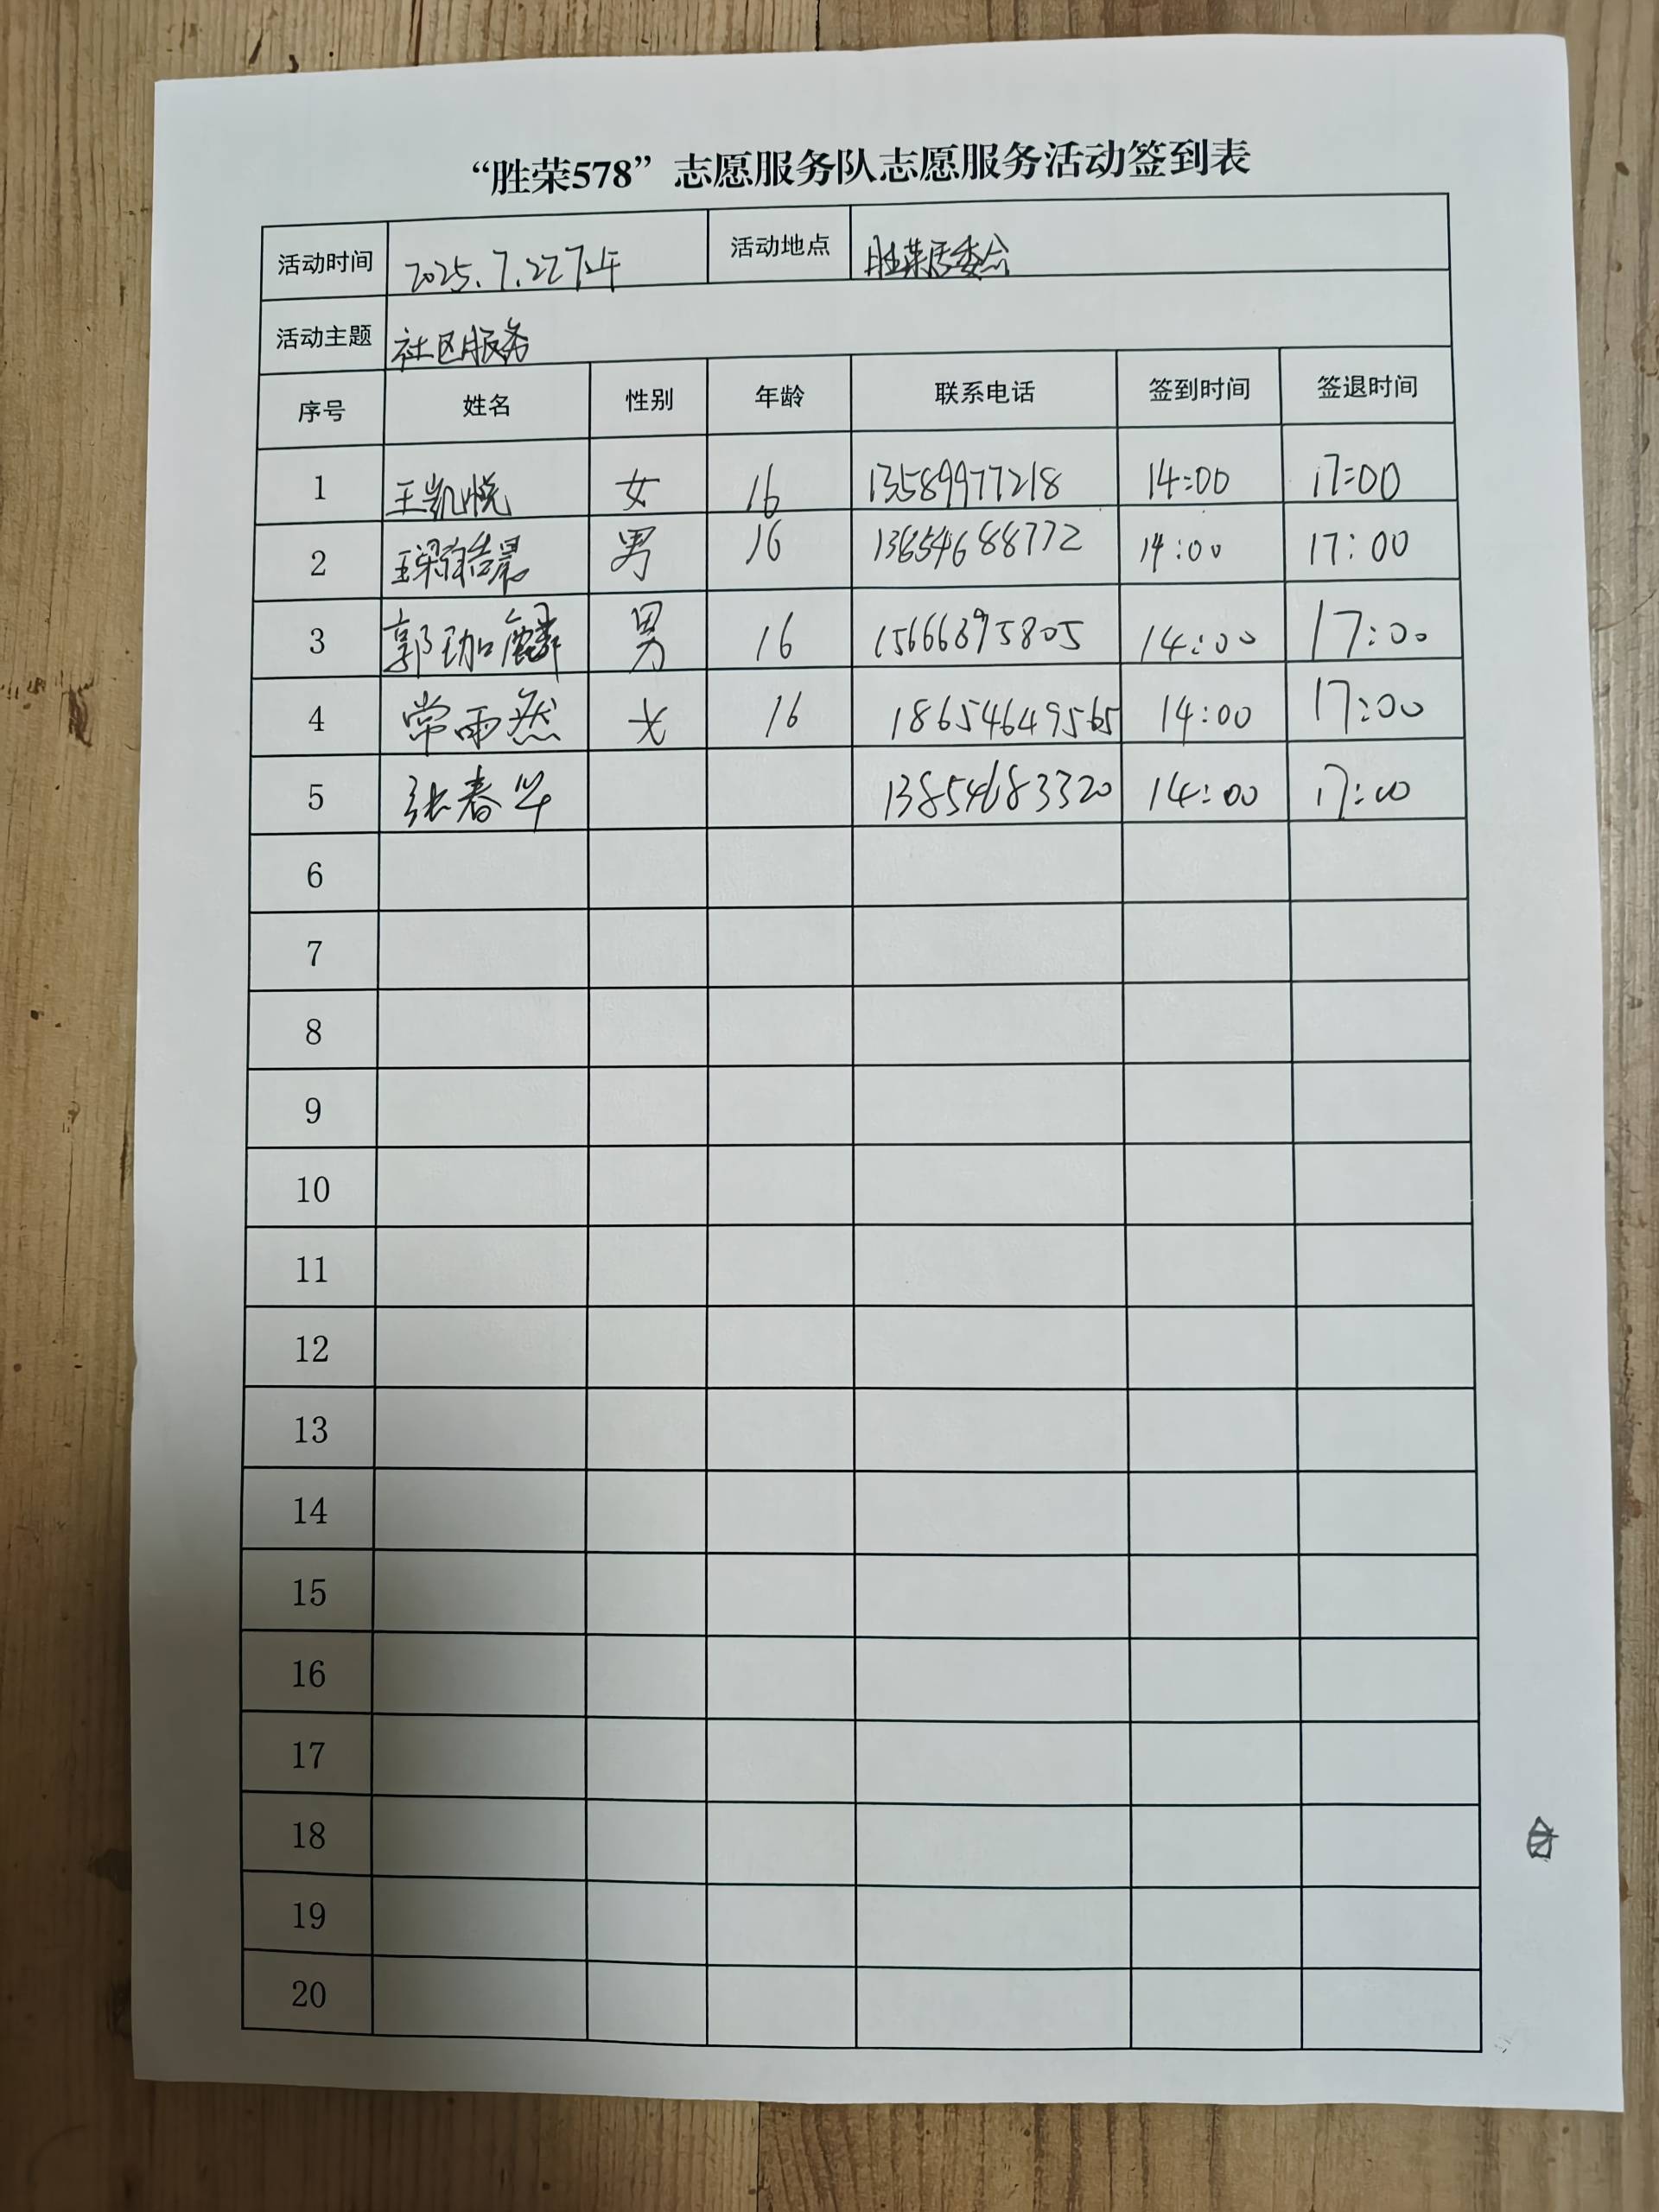 “胜荣578”志愿服务队志愿服务活动签到表
活动时间 2025.7.22下午 活动地点 胜荣居委会
活动主题 社区服务
序号 姓名 性别 年龄 联系电话 签到时间 签退时间
1 王凯悦 女 16 13589977218 14:00 17:00
2 男 16 13654688772 14:00 17:00
3 郭珈麟 男 16 15666395805 14:00 17:00
4 常雨然 女 16 18654649565 14:00 17:00
5 张春华 13854683320 14:00 17:00
6
7
8
9
10
11
12
13
14
15
16
17
18
19
20